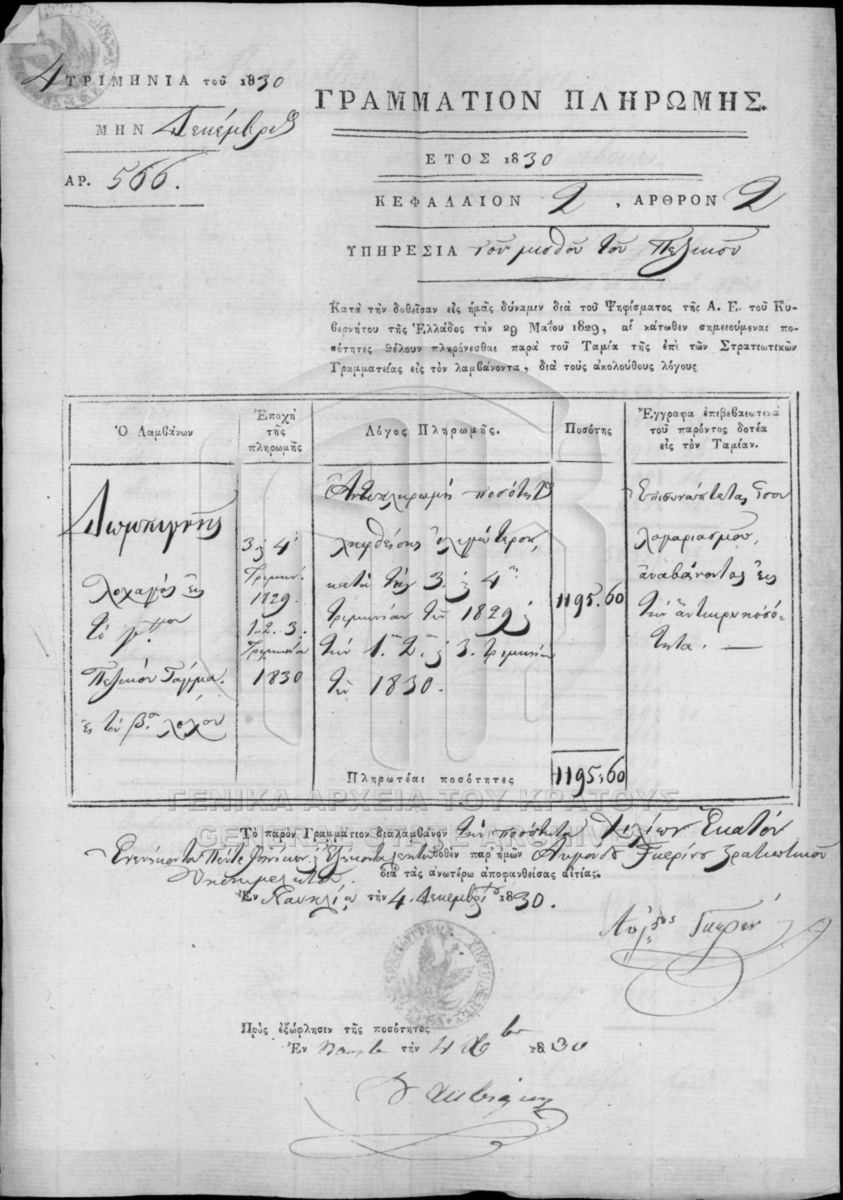 4 ΤΡΙΜΗΝΙΑ τοῦ 1830
ΜΗΝ Δεκέμβριος
ΑΡ. 566.
ΓΡΑΜΜΑΤΙΟΝ ΠΛΗΡΩΜΗΣ.
ΕΤΟΣ 1830
ΚΕΦΑΛΑΙΟΝ 2, ΑΡΘΡΟΝ 2
ΥΠΗΡΕΣΙΑ τοῦ μισθοῦ τοῦ Πεζικοῦ
Κατὰ τὴν δοθεῖσαν εἰς ἡμᾶς δύναμιν διὰ τοῦ Ψηφίσματος τῆς Α. Ε. τοῦ Κυ-
βερνήτου τῆς Ἑλλάδος τὴν 29 Μαΐου 1829, αἱ κάτωθεν σημειούμεναι πο-
σότητες θέλουν πληρόνεσθαι παρὰ τοῦ Ταμία τῆς ἐπὶ τῶν Στρατιωτικῶν
Γραμματείας εἰς τὸν λαμβάνοντα, διὰ τοὺς ἀκολούθους λόγους
Ὁ Λαμβάνων
Ἐποχὴ
τῆς
πληρωμῆς
Λόγος Πληρωμῆς.
Ποσότης
Ἔγγραφα ἐπιβεβαιωτικὰ
τοῦ παρόντος δοτέα
εἰς τὸν Ταμίαν.
λοχαγὸς εἰς
τὸ γ.ον
Πεζικὸν Τάγμα.
εἰς τὸν β.ον λόχον
3 ἢ 4
Τριμην.
1829.
1. 2. 3.
Τριμηνία
1830
Ἀντιπληρωμὴ ποσότητος
ληφθείσης ὀλιγώτερον,
κατὰ τὰς 3. ἢ 4ην
τριμηνίαν τοῦ 1829 ἢ
τὴν 1. 2. ἢ 3. τριμηνίαν
τοῦ 1830.
1195.60
Ἐπισυνάπτεται ἴσον
λογαριασμοῦ,
ἀναβαίνοντος εἰς
τὴν ἄντικρυ ποσό-
τητα. —
Πληρωτέαι ποσότητες
1195:60
ΓΕΝΙΚΑ ΑΡΧΕΙΑ ΤΟΥ ΚΡΑΤΟΥΣ
GENERAL STATE ARCHIVES
Τὸ παρὸν Γραμμάτιον διαλαμβάνον τὴν ποσότητα Χιλίων Ἑκατὸν
Ἐνενήκοντα Πέντε Φοινίκων ἢ Ἑξήκοντα λεπτῶν δοθὲν παρ' ἡμῶν Στρατιωτικοῦ
διὰ τὰς ἀνωτέρω ἀποφανθείσας αἰτίας.
Ἐν Ναυπλίῳ τὴν 4. Δεκεμβρίου 1830.
Πρὸς ἐξώφλησιν τῆς ποσότητος
Ἐν τὴν 4 Xbr 1830